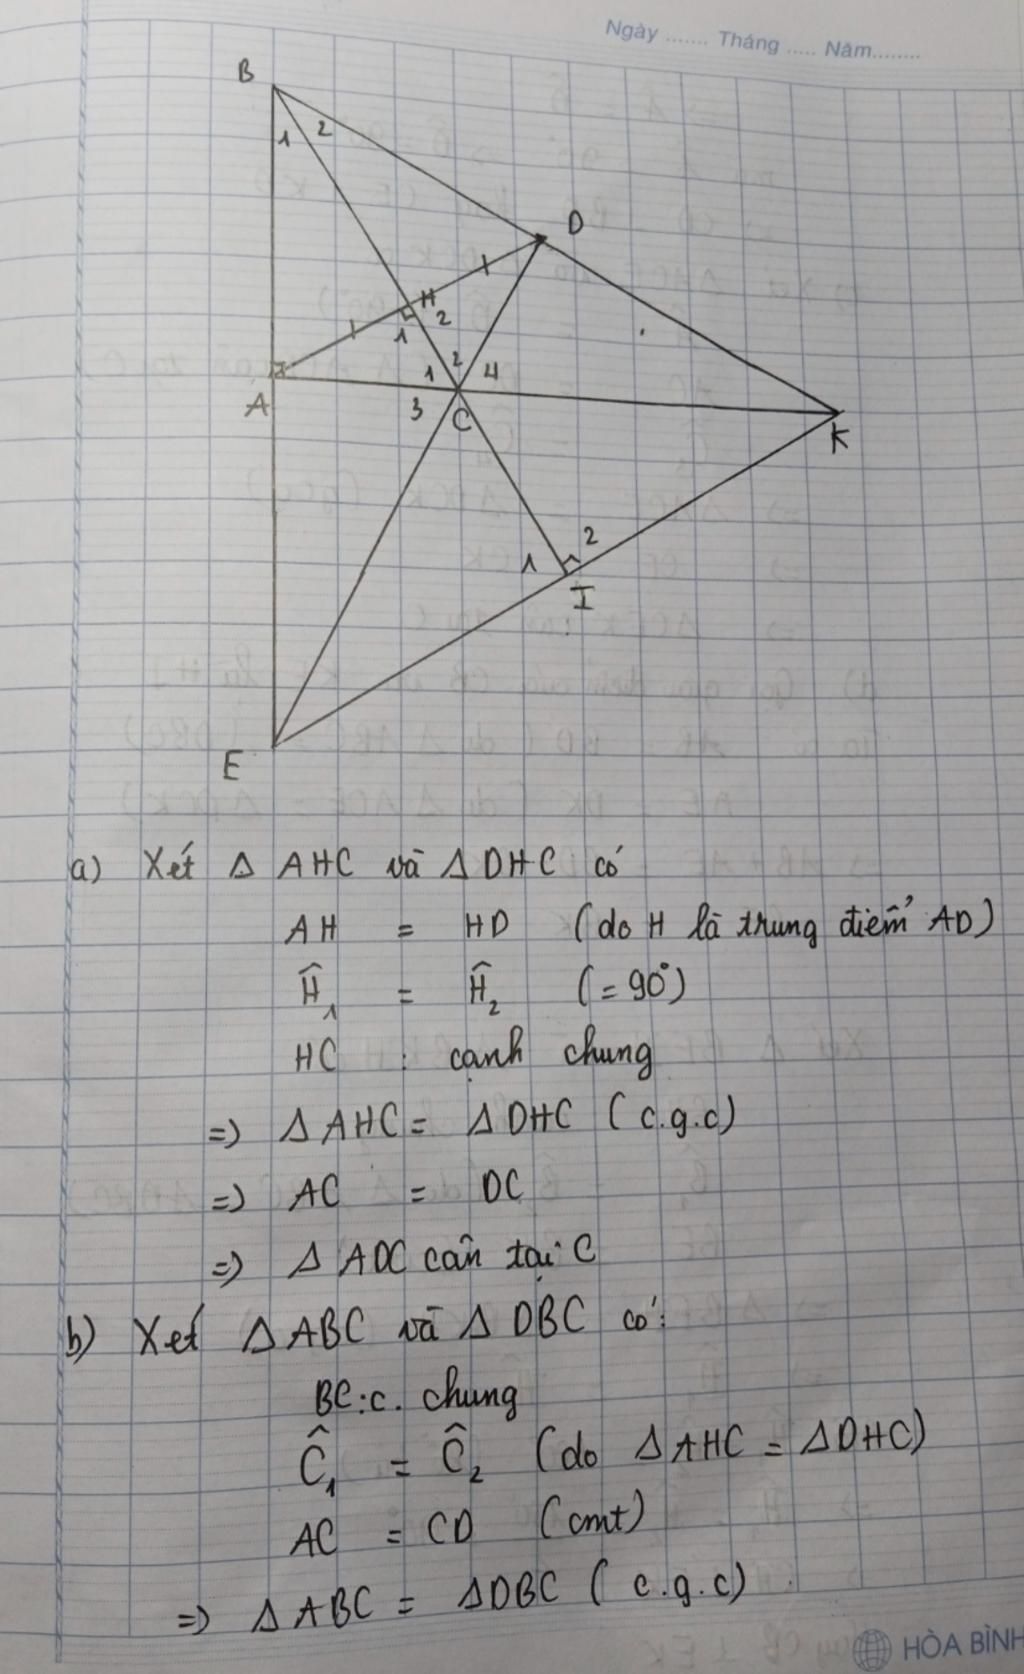 Ngày ....... Tháng ..... Năm........
B
1 2
D
H
1 2
1 2 4
A 3 C K
1 2
I
E
a) Xét Δ AHC và Δ DHC có
AH = HD (do H là trung điểm AD)
Ĥ₁ = Ĥ₂ (= 90°)
HC : cạnh chung
=> Δ AHC = Δ DHC (c.g.c)
=> AC = DC
=> Δ ADC cân tại C
b) Xét Δ ABC và Δ DBC có:
BC: c. chung
Ĉ₁ = Ĉ₂ (do Δ AHC = Δ DHC)
AC = CD (cmt)
=> Δ ABC = Δ DBC (c.g.c)
HÒA BÌNH